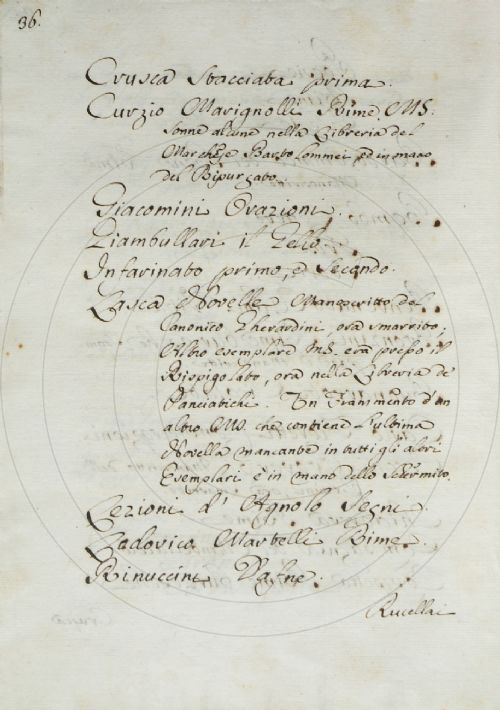 36.
Crusca Stacciata prima.
Curzio Marignolli Rime MS.
sonne alcune nella Libreria del
Marchese Bartolommei ed in mano
del Ripurgato.
Giacomini Orazioni.
Giambullari il Gello.
Infarinato primo, e Secondo.
Lasca Novelle Manoscritto del
Canonico Gherardini, ora smarrito;
Altro esemplare MS. era presso il
Rispigolato, ora nella Libreria de
Panciatichi. Un Frammento d'un
altro MS. che contiene l'ultima
Novella mancante in tutti gli altri
Esemplari è in mano dello Schermito.
Lezioni d'Agnolo Segni.
Lodovico Martelli Rime.
Rinuccini Dafne.
Rucellai